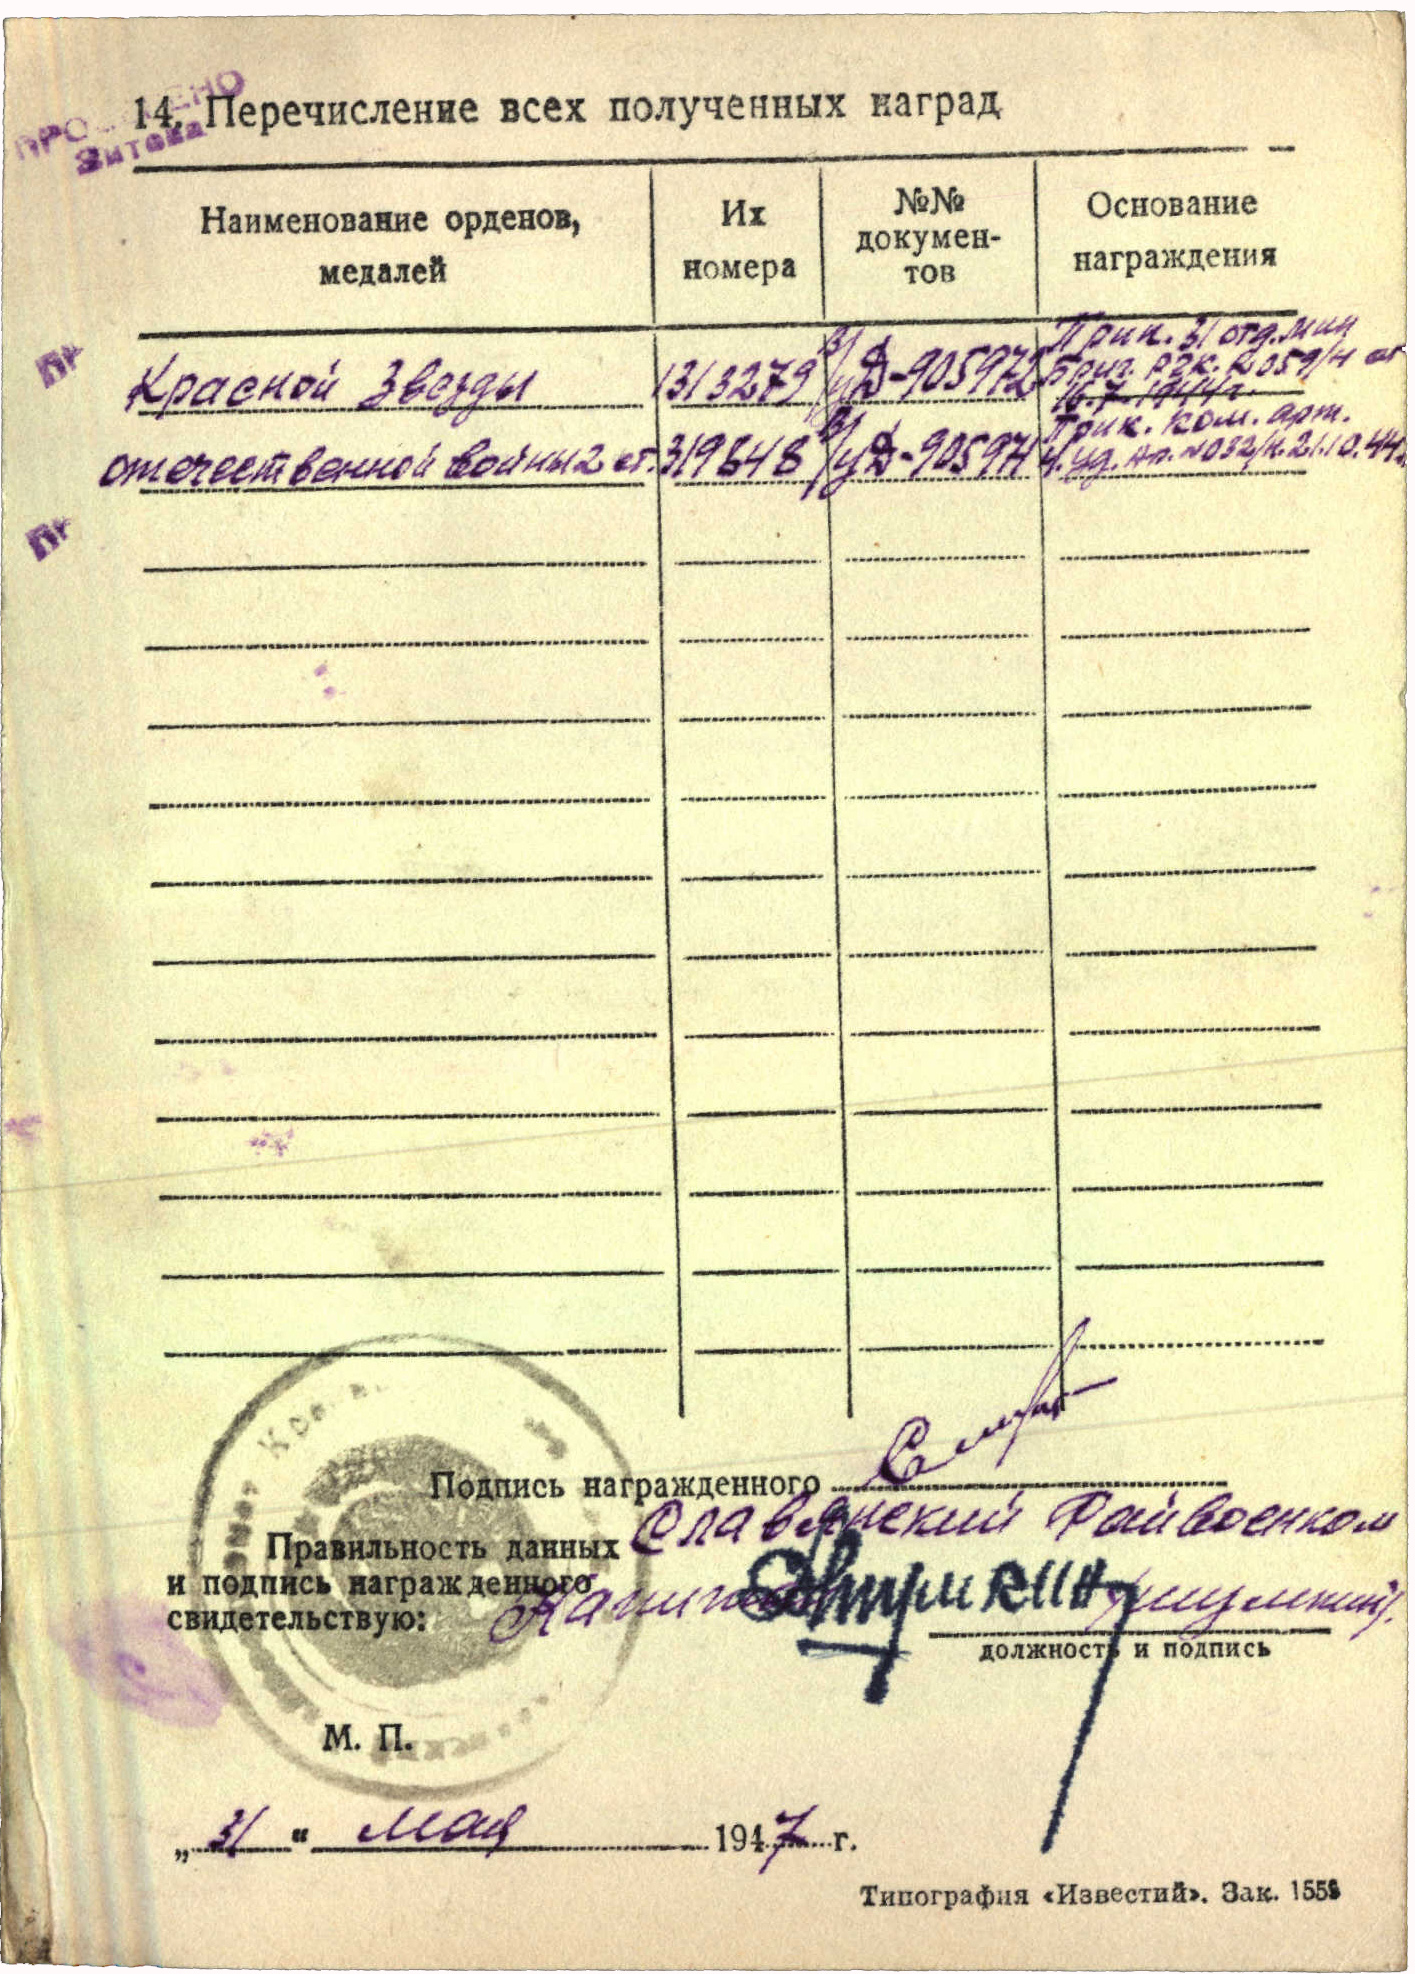 14. Перечисление всех полученных наград
Наименование орденов,
медалей
Их
номера
№№
докумен-
тов
Основание
награждения
Красной Звезды 1313279 В/у Д-905972 Прик. 31 отд. мин
Бриг. РГК. №059/н от
16.7.1944г.
Отечественной войны 2 ст. 319648 В/у Д-905974 Прик. ком. арт.
4. уд. №032/н. 21.10.44г.
Подпись награжденного
Правильность данных Славянский Райвоенком
и подпись награжденного
свидетельствую:
должность и подпись
М. П.
„31“ мая 1947 г.
Типография «Известий». Зак. 1558